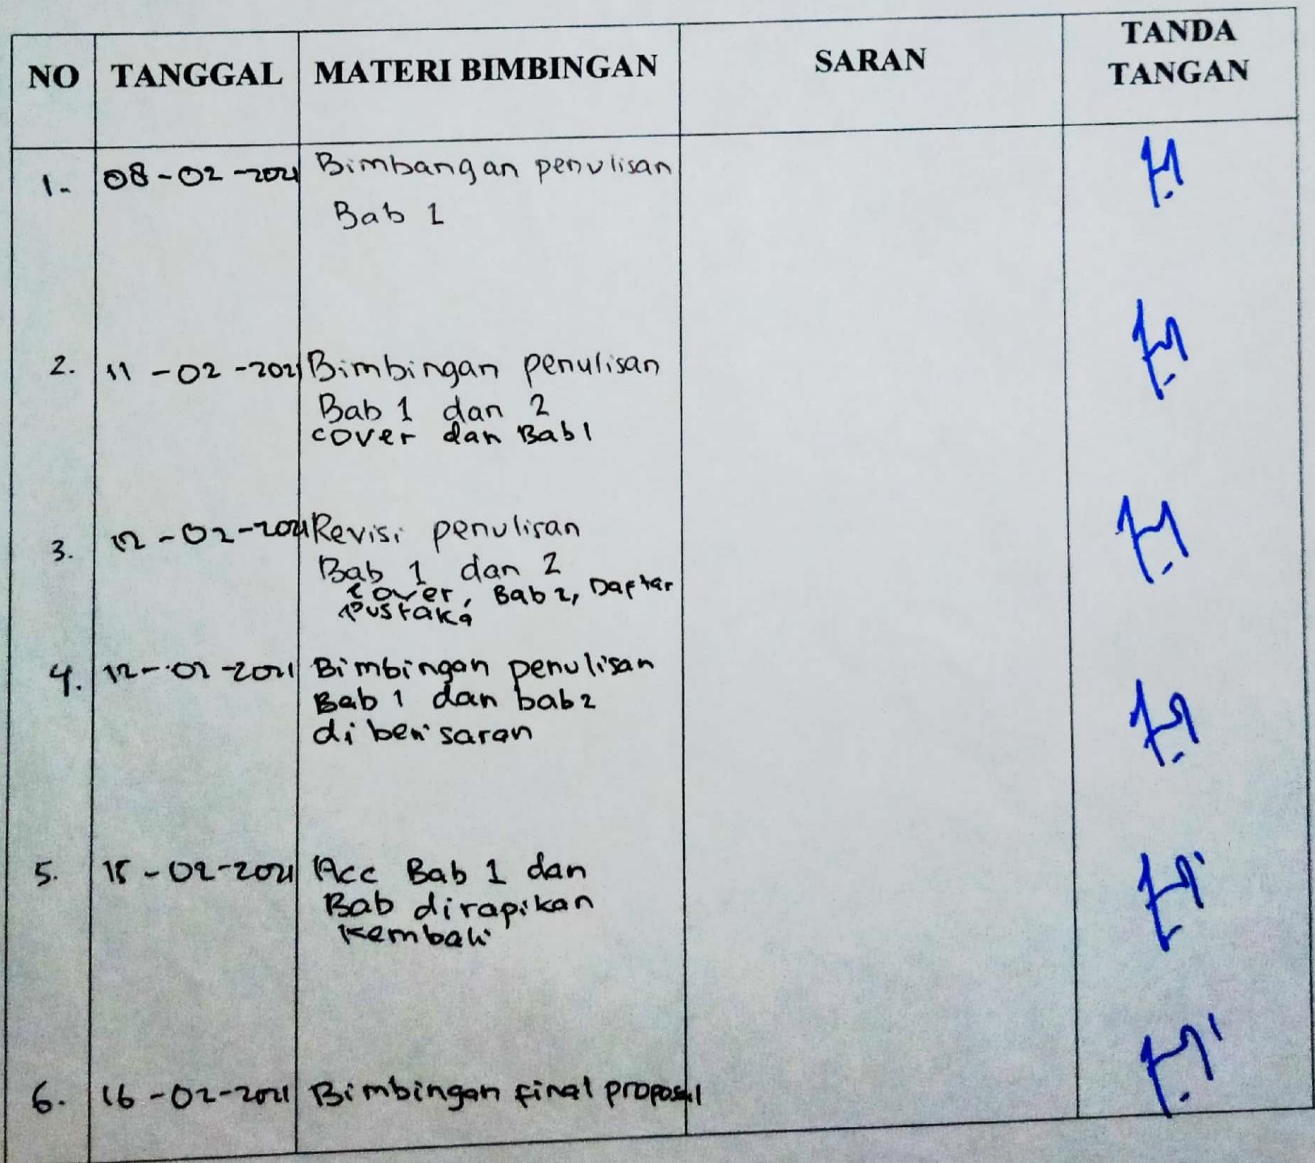 NO TANGGAL MATERI BIMBINGAN SARAN TANDA TANGAN
1. 08-02-2021 Bimbangan penulisan
Bab 1
2. 11-02-2021 Bimbingan penulisan
Bab 1 dan 2
cover dan Bab 1
3. 12-02-2021 Revisi penulisan
Bab 1 dan 2
cover, Bab 2, Daftar
Pustaka
4. 12-02-2021 Bimbingan penulisan
Bab 1 dan bab 2
diberi saran
5. 15-02-2021 Acc Bab 1 dan
Bab dirapikan
kembali
6. 16-02-2021 Bimbingan final proposal